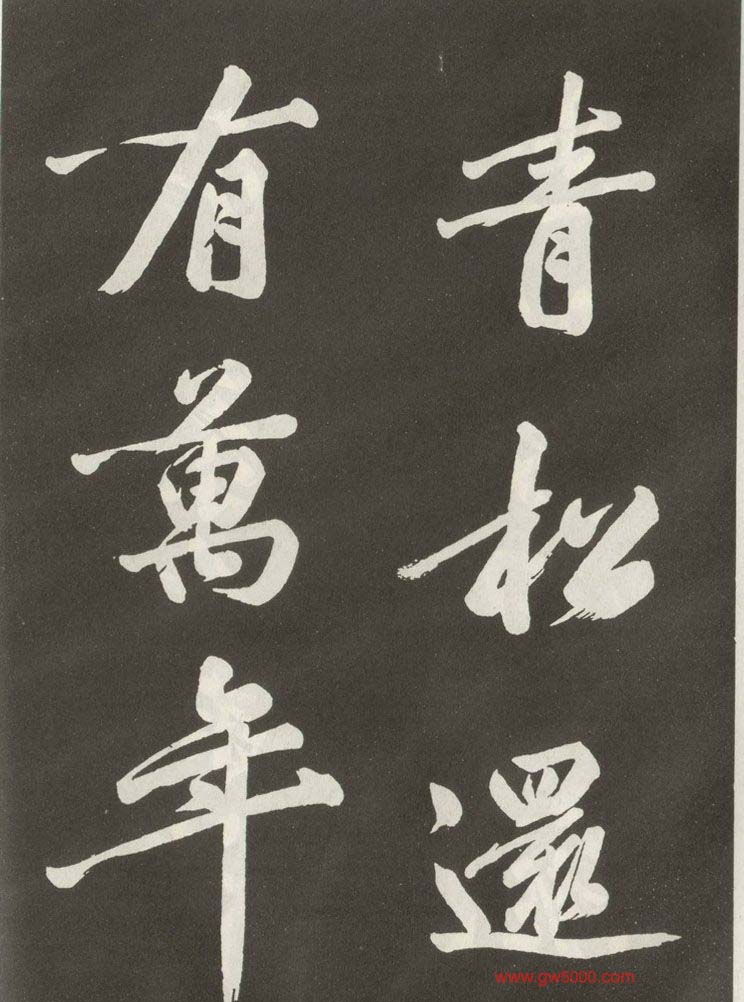 青松還
有萬年
www.gw5000.com